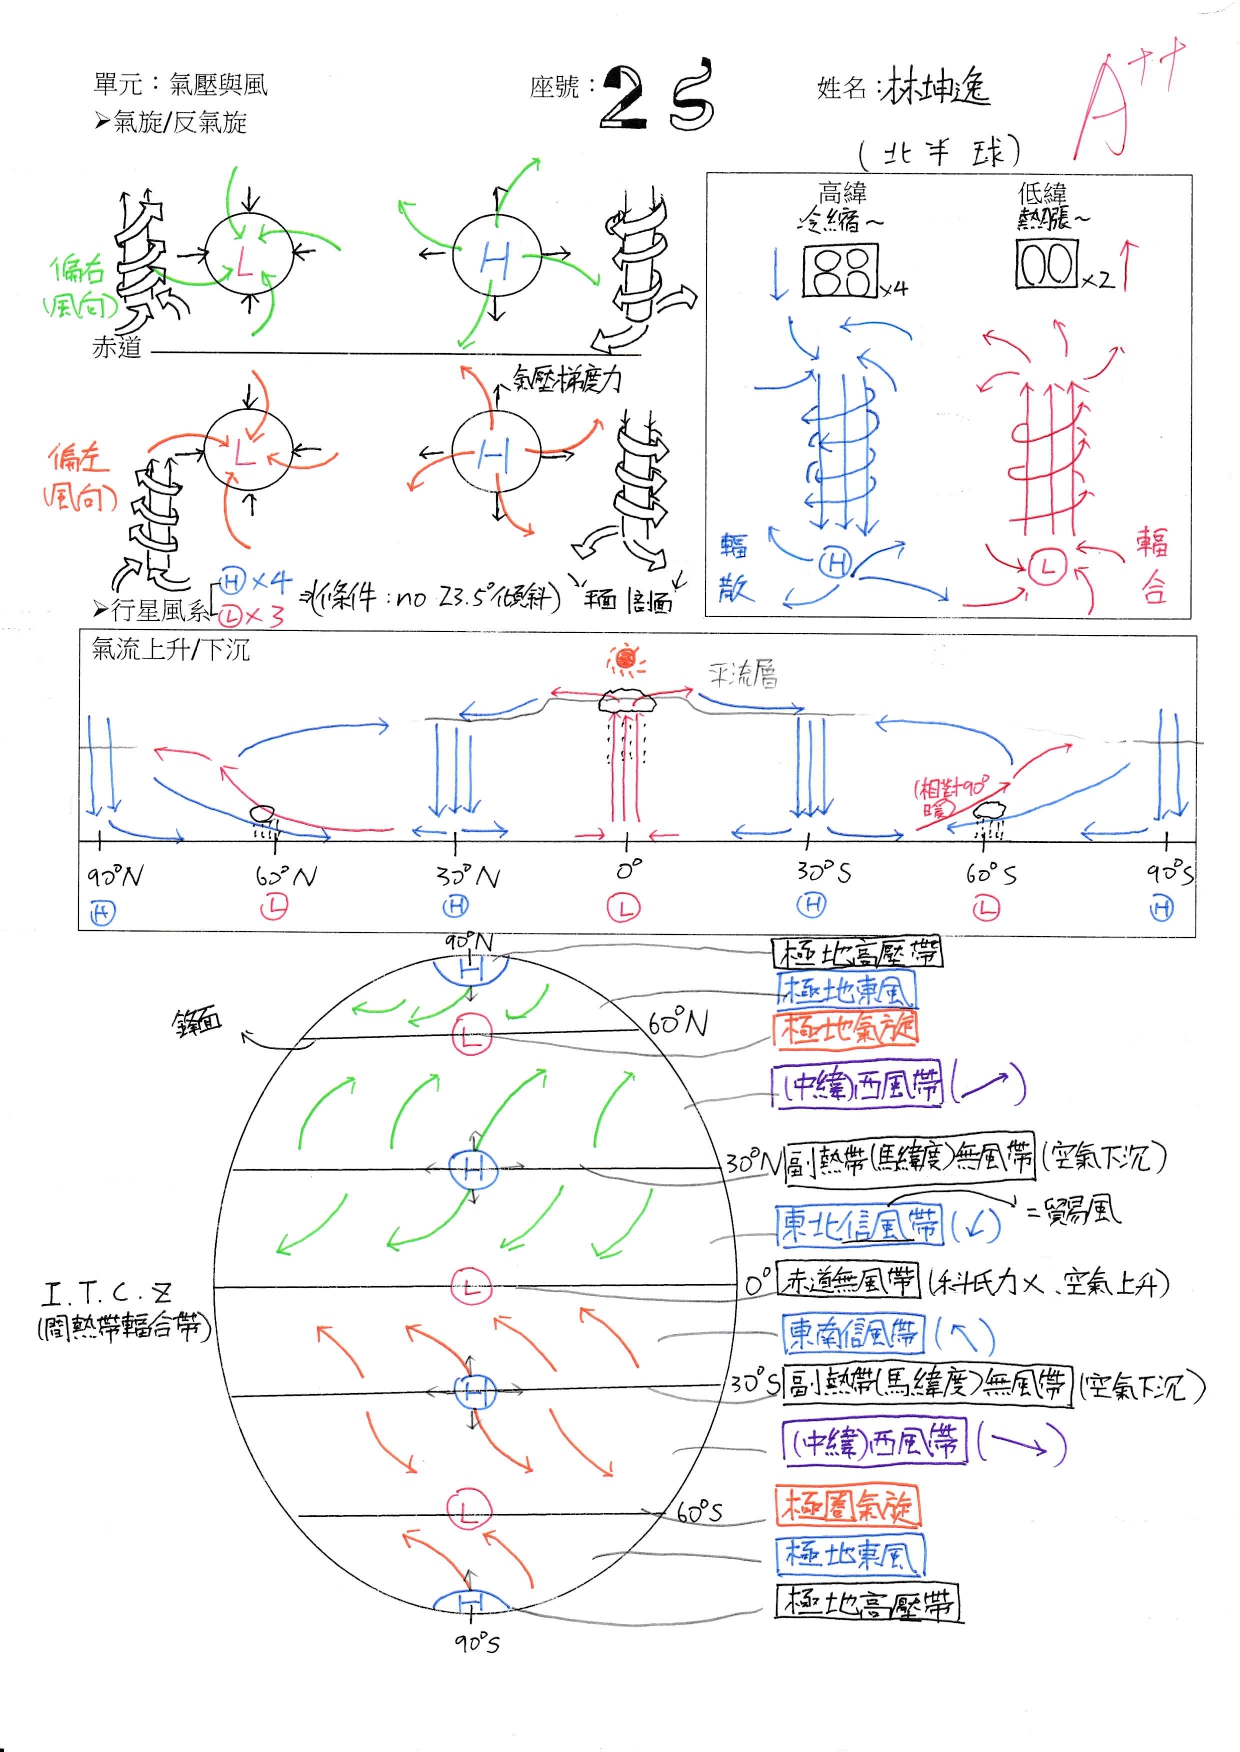 單元：氣壓與風 座號：25 姓名：林坤逸 A++
➢氣旋/反氣旋
(北半球)
高緯 低緯
冷縮～ 熱漲～
×4 ×2
L H
偏右
(風向)
赤道
氣壓梯度力
L H
偏左
(風向)
輻散 H L 輻合
➢行星風系 H×4 L×3 ⇒(條件：no 23.5°傾斜) 平面 剖面
氣流上升/下沉
平流層
(相對90°暖)
90°N 60°N 30°N 0° 30°S 60°S 90°S
H L H L H L H
90°N
H 極地高壓帶
極地東風
鋒面 L 60°N 極地氣旋
(中緯)西風帶(↗)
H 30°N 副熱帶(馬緯度)無風帶(空氣下沉)
東北信風帶(↙) =貿易風
I.T.C.Z
(間熱帶輻合帶)
L 0° 赤道無風帶(科氏力×、空氣上升)
東南信風帶(↖)
H 30°S 副熱帶(馬緯度)無風帶(空氣下沉)
(中緯)西風帶(↘)
L 60°S 極圈氣旋
極地東風
H 極地高壓帶
90°S